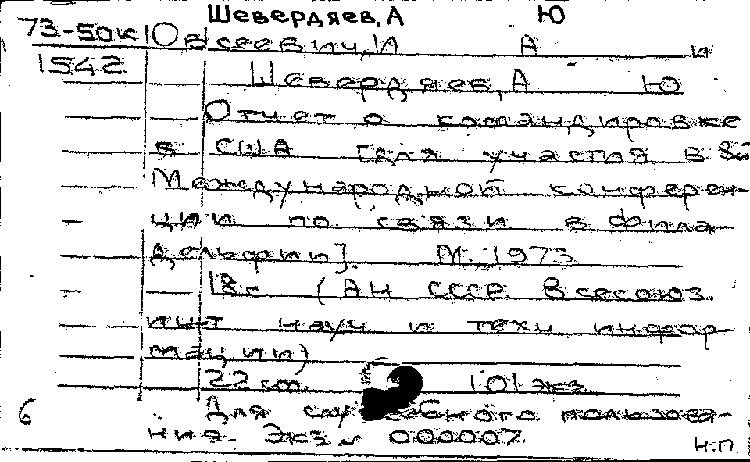 Шевердяев, А Ю
73-50к Овсеевич, А А и
1542 Шевердяев, А Ю
Отчет о командировке
в США [для участия в 8й
Международной конферен-
ции по связи в Фила-
дельфии]. М. 1973
18с (АН СССР. Всесоюз.
инт науч и техн инфор
мации)
22 см. 101 экз.
Для служебного пользова-
ния. Экз № 000007.
6 н.п